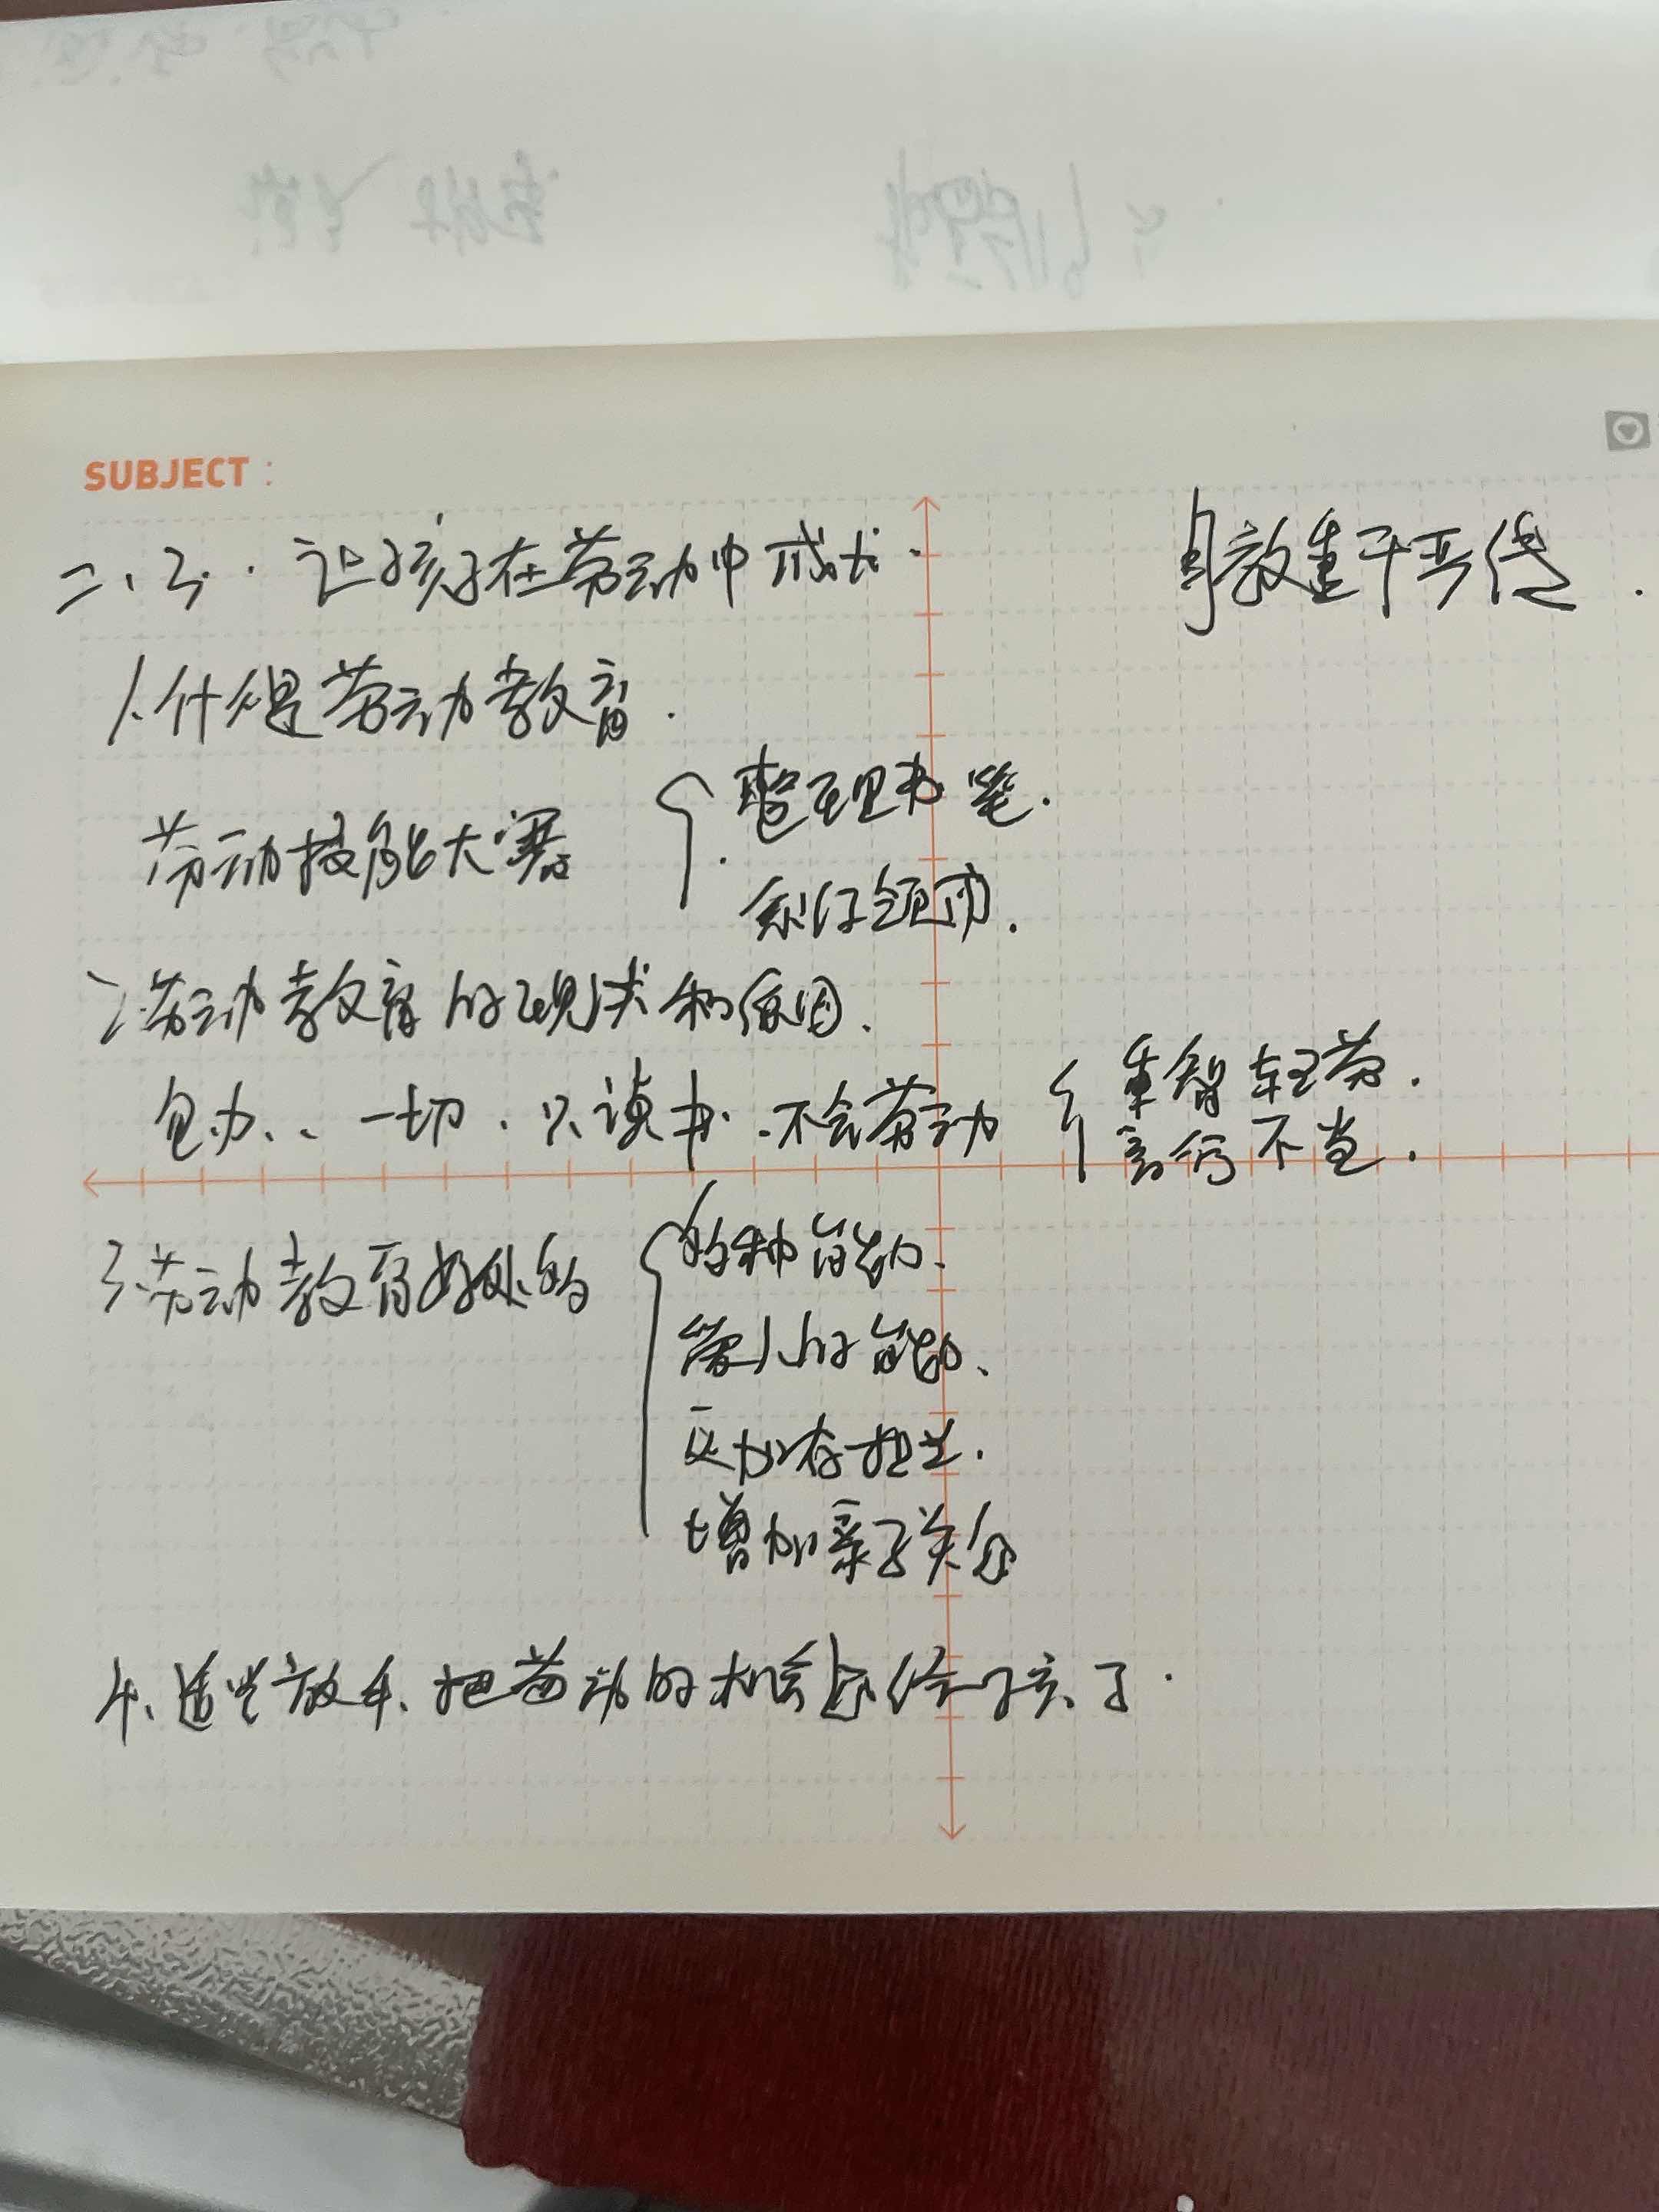 SUBJECT:
二、2.让孩子在劳动中成长.
身教重于言传.
1.什么是劳动教育.
劳动技能大赛
整理书笔.
系红领巾.
2.劳动教育的现状和原因.
包办、、一切.只读书.不会劳动
重智轻劳.
言行不当.
3.劳动教育好处的
各种能力、
做人的能力、
更加有担当.
增加亲子关系
4、适当放手、把劳动的机会还给孩子.